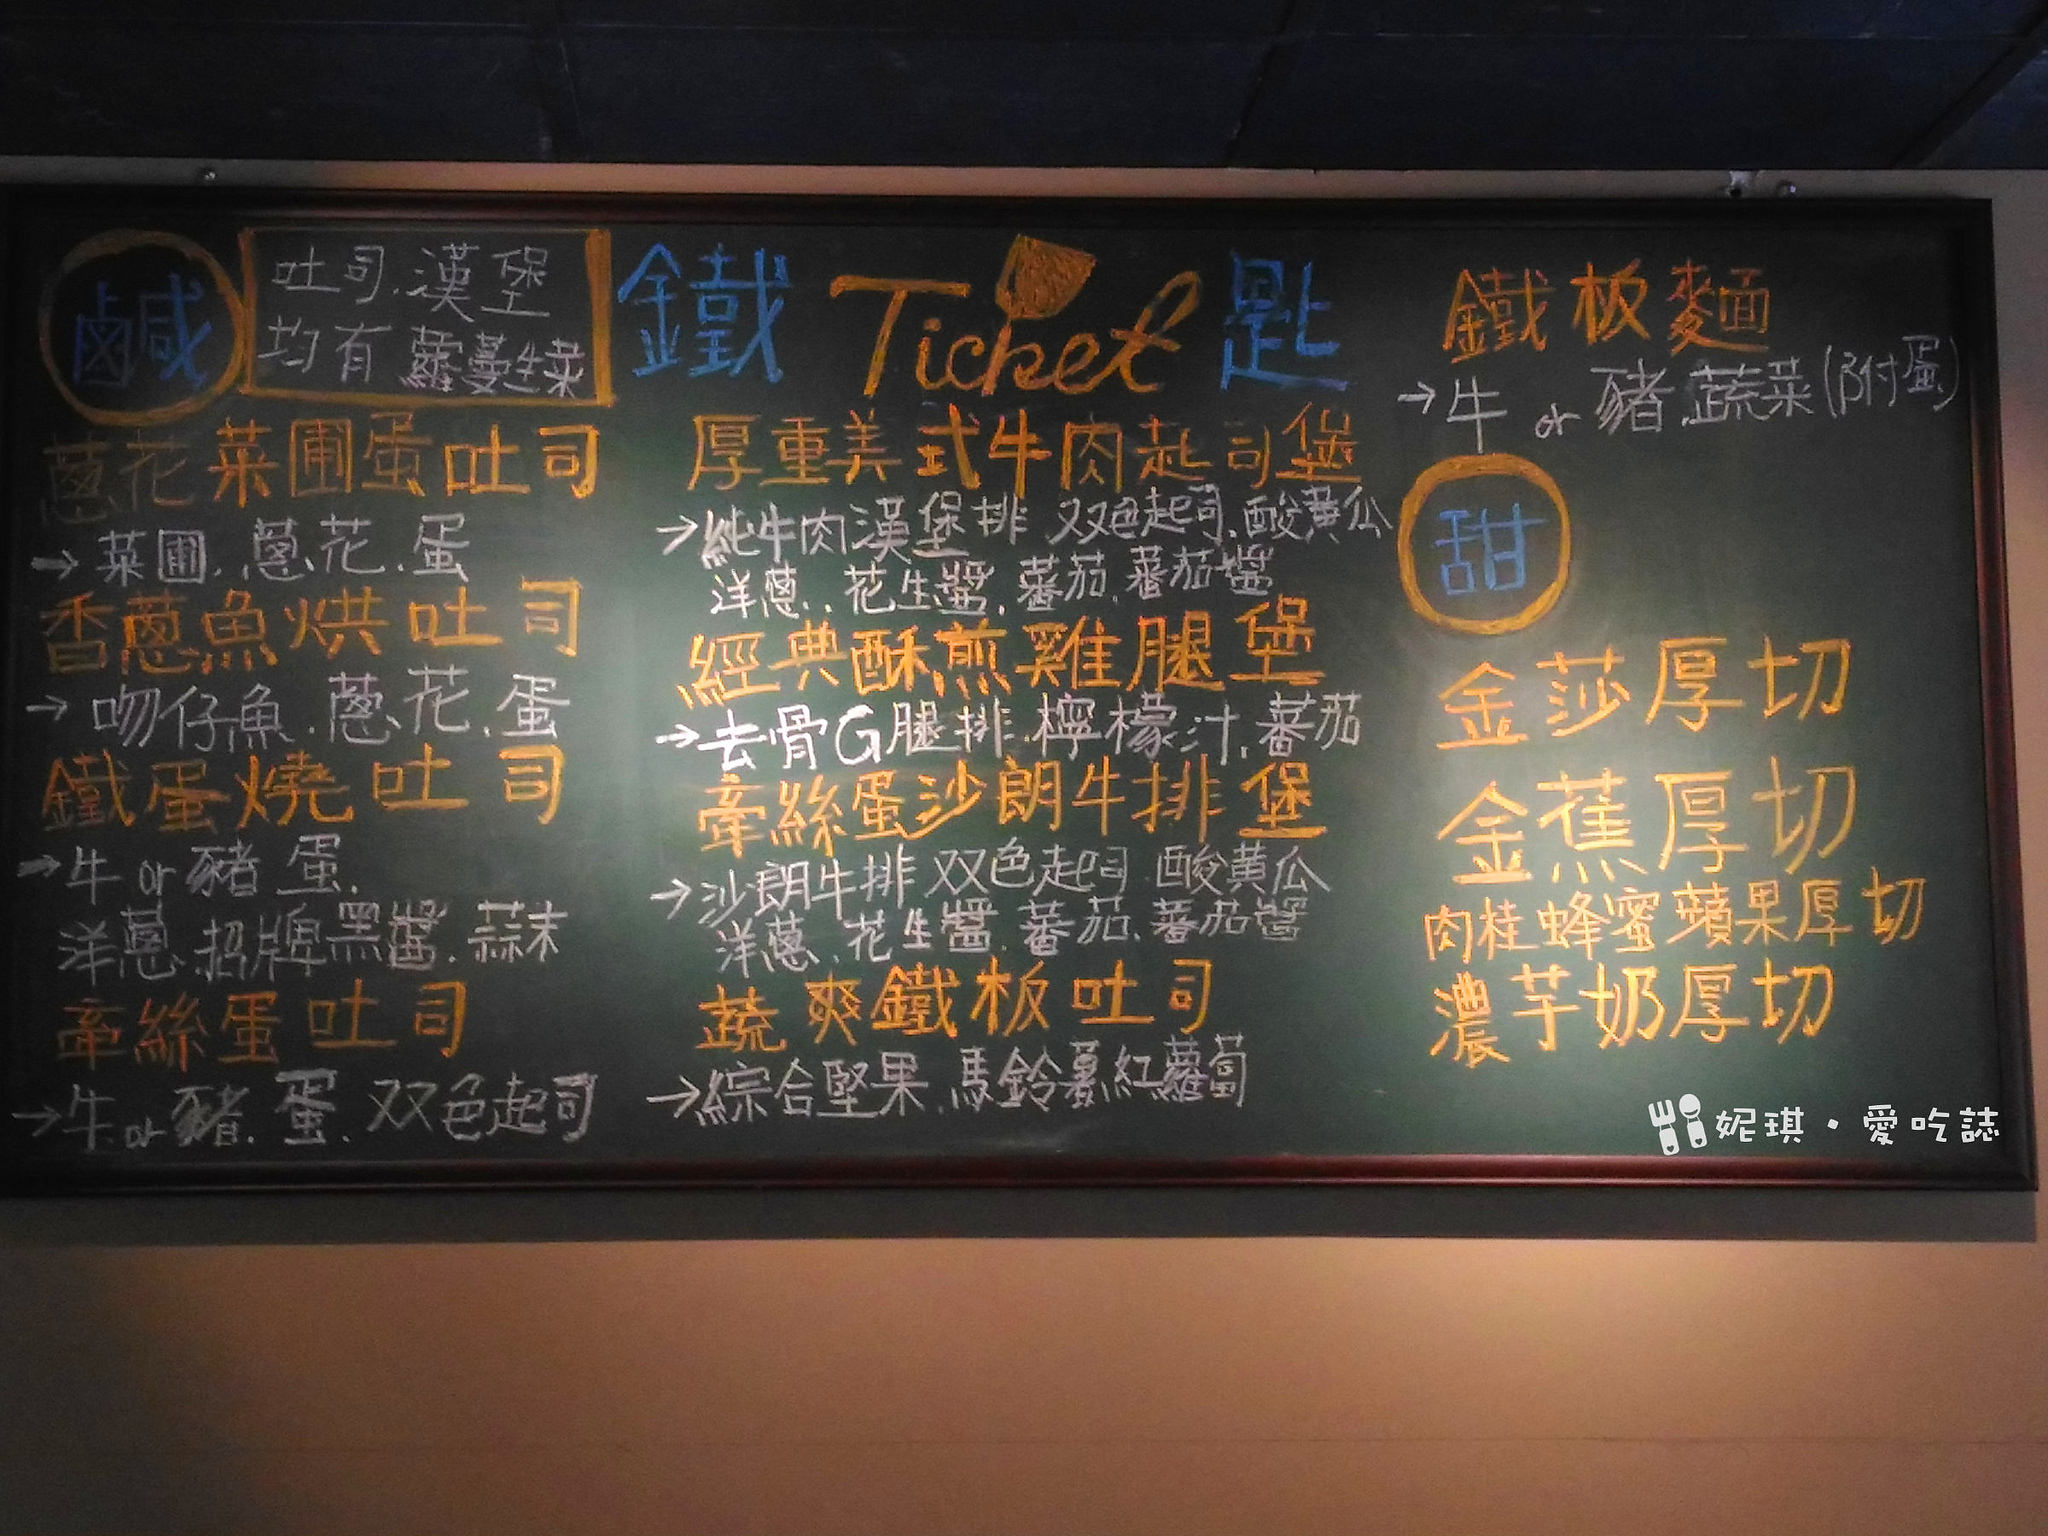 鹹
吐司.漢堡
均有 蘿蔓生菜
蔥花菜圃蛋吐司
→菜圃.蔥花.蛋
香蔥魚烘吐司
→吻仔魚.蔥花.蛋
鐵蛋燒吐司
→牛 or 豬 蛋.
洋蔥.招牌黑醬.蒜末
牽絲蛋吐司
→牛 or 豬.蛋.双色起司
鐵 Ticket 匙
厚重美式牛肉起司堡
→純牛肉漢堡排 双色起司.酸黃瓜
洋蔥..花生醬.蕃茄.蕃茄醬
經典酥煎雞腿堡
→去骨G腿排.檸檬汁.蕃茄
牽絲蛋沙朗牛排堡
→沙朗牛排 双色起司 酸黃瓜
洋蔥.花生醬.蕃茄.蕃茄醬
蔬爽鐵板吐司
→綜合堅果.馬鈴薯.紅蘿蔔
鐵板麵
→牛 or 豬.蔬菜(附蛋)
甜
金莎厚切
金蕉厚切
肉桂蜂蜜蘋果厚切
濃芋奶厚切
妮琪・愛吃誌